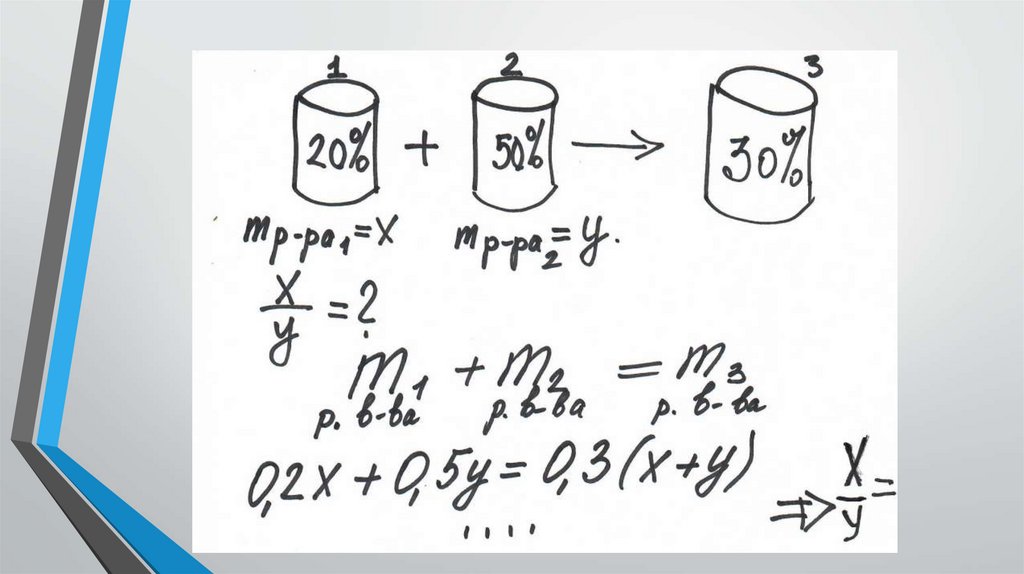 1 2 3
20% + 50% → 30%
mр-ра₁=x mр-ра₂=y.
x/y=?
m₁ + m₂ = m₃
р. в-ва р. в-ва р. в-ва
0,2x + 0,5y = 0,3(x+y)
.... ⇒ x/y =